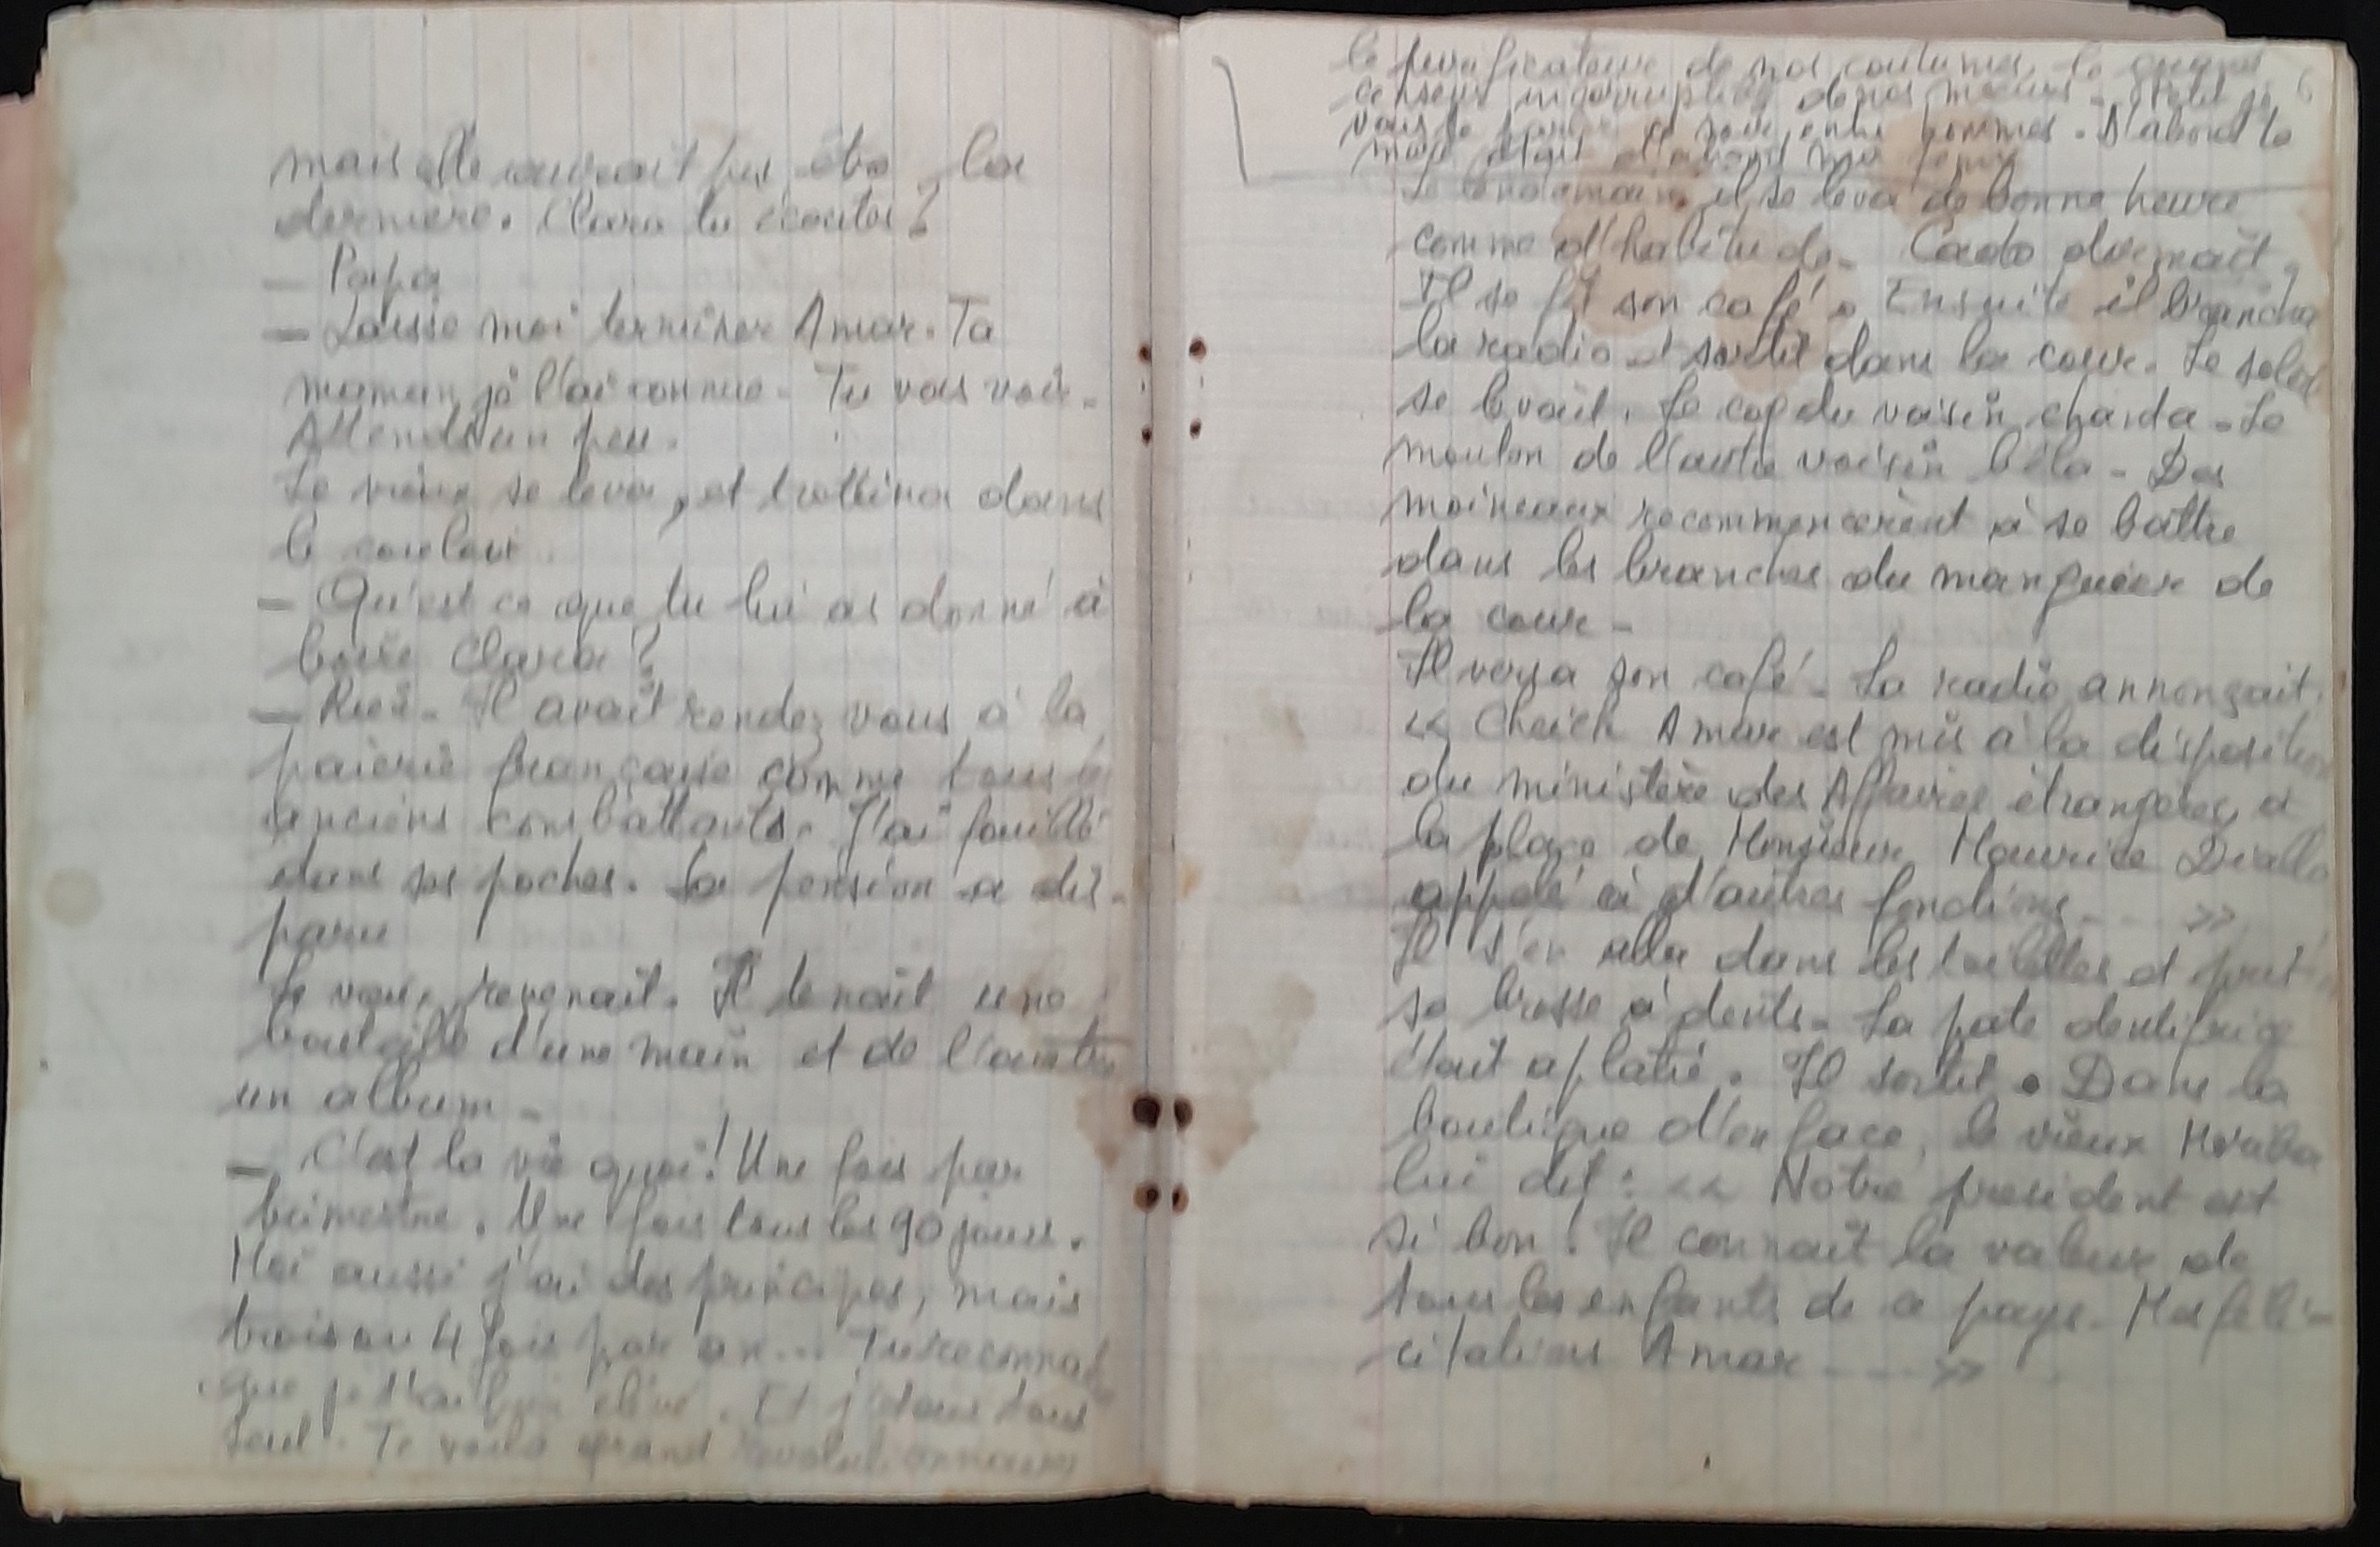 mais elle pas être la
dernière. Clara tu écoutes ?
— Papa
— Laisse moi terminer Amar. Ta
maman je l'ai connue. Tu vas voir.
Attends un peu.
Le vieux se leva, et trottina dans
le couloir.
— Qu'est ce que tu lui as donné à
boire Clara ?
— Rien. Il avait rendez vous à la
paierie française comme tous les
anciens combattants. J'ai fouillé
dans ses poches. La pension a dis-
paru
Le vieux revenait. Il tenait une
bouteille d'une main et de l'autre
un album.
— C'est la vie quoi ! Une fois par
trimestre. Une fois tous les 90 jours.
Moi aussi j'ai des principes, mais
trois ou 4 fois par an... Tu reconnais
que je t'ai bien élevé. Et j'étais tout
seul. Te voilà grand révolutionnaire
le purificateur de nos coutumes, le grand 6
censeur incorruptible de nos mœurs.
vous entre hommes. D'abord le
d'abord
Le lendemain, il se leva de bonne heure
comme d'habitude. dormait.
Il se fit son café. Ensuite il brancha
la radio et sortit dans la cour. Le soleil
se levait. Le coq du voisin chanta. Le
mouton de l'autre voisin bêla. Des
moineaux recommencèrent à se battre
dans les branches du manguier de
la cour.
Il versa son café. La radio annonçait.
<< Cheick Amar est mis à la disposition
du ministère des Affaires étrangères, à
la place de Monsieur Maurice Diallo
appelé à d'autres fonctions... >>
Il s'en alla dans les toilettes et prit
sa brosse à dents. La pate dentifrice
était aplatie. Il sortit. Dans la
boutique d'en face, le vieux
lui dit : << Notre president est
si bon. Il connait la valeur de
tous les enfants de ce pays. Mes féli-
citations Amar ... >>